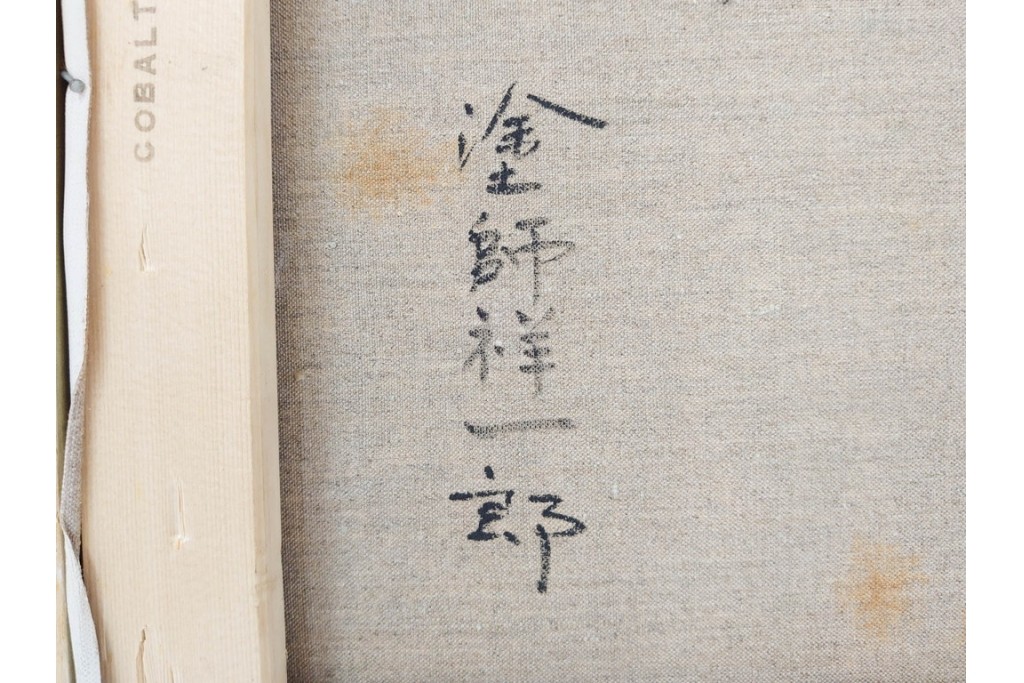 COBALT
塗師祥一郎